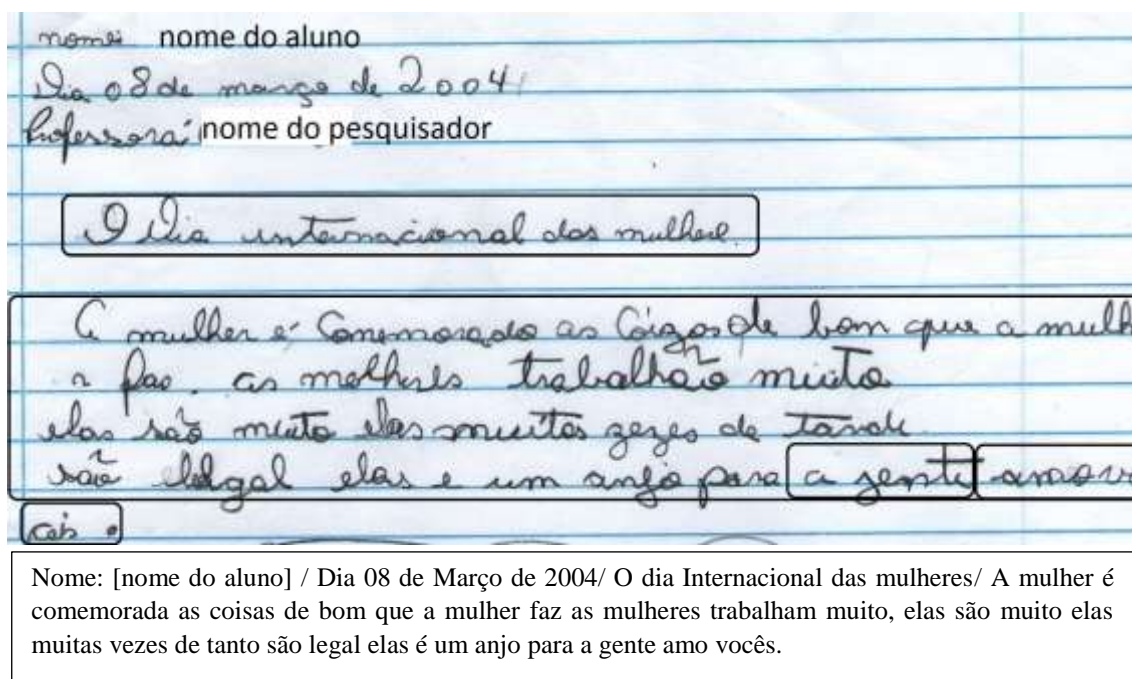 nome: nome do aluno
Dia 08 de março de 2004
Professora: nome do pesquisador
O Dia internacional das mulhere.
A mulher e Comemorado as de bom que a mulh
r fas. as trabalhão muito
elas são muito elas muitas de
são legal elas e um anjo para a gente amo v
ceis.
Nome: [nome do aluno] / Dia 08 de Março de 2004/ O dia Internacional das mulheres/ A mulher é
comemorada as coisas de bom que a mulher faz as mulheres trabalham muito, elas são muito elas
muitas vezes de tanto são legal elas é um anjo para a gente amo vocês.